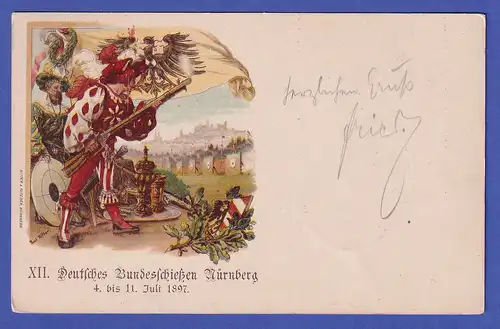 herzlichen Gruß
XII. Deutsches Bundesschießen Nürnberg
4. bis 11. Juli 1897.